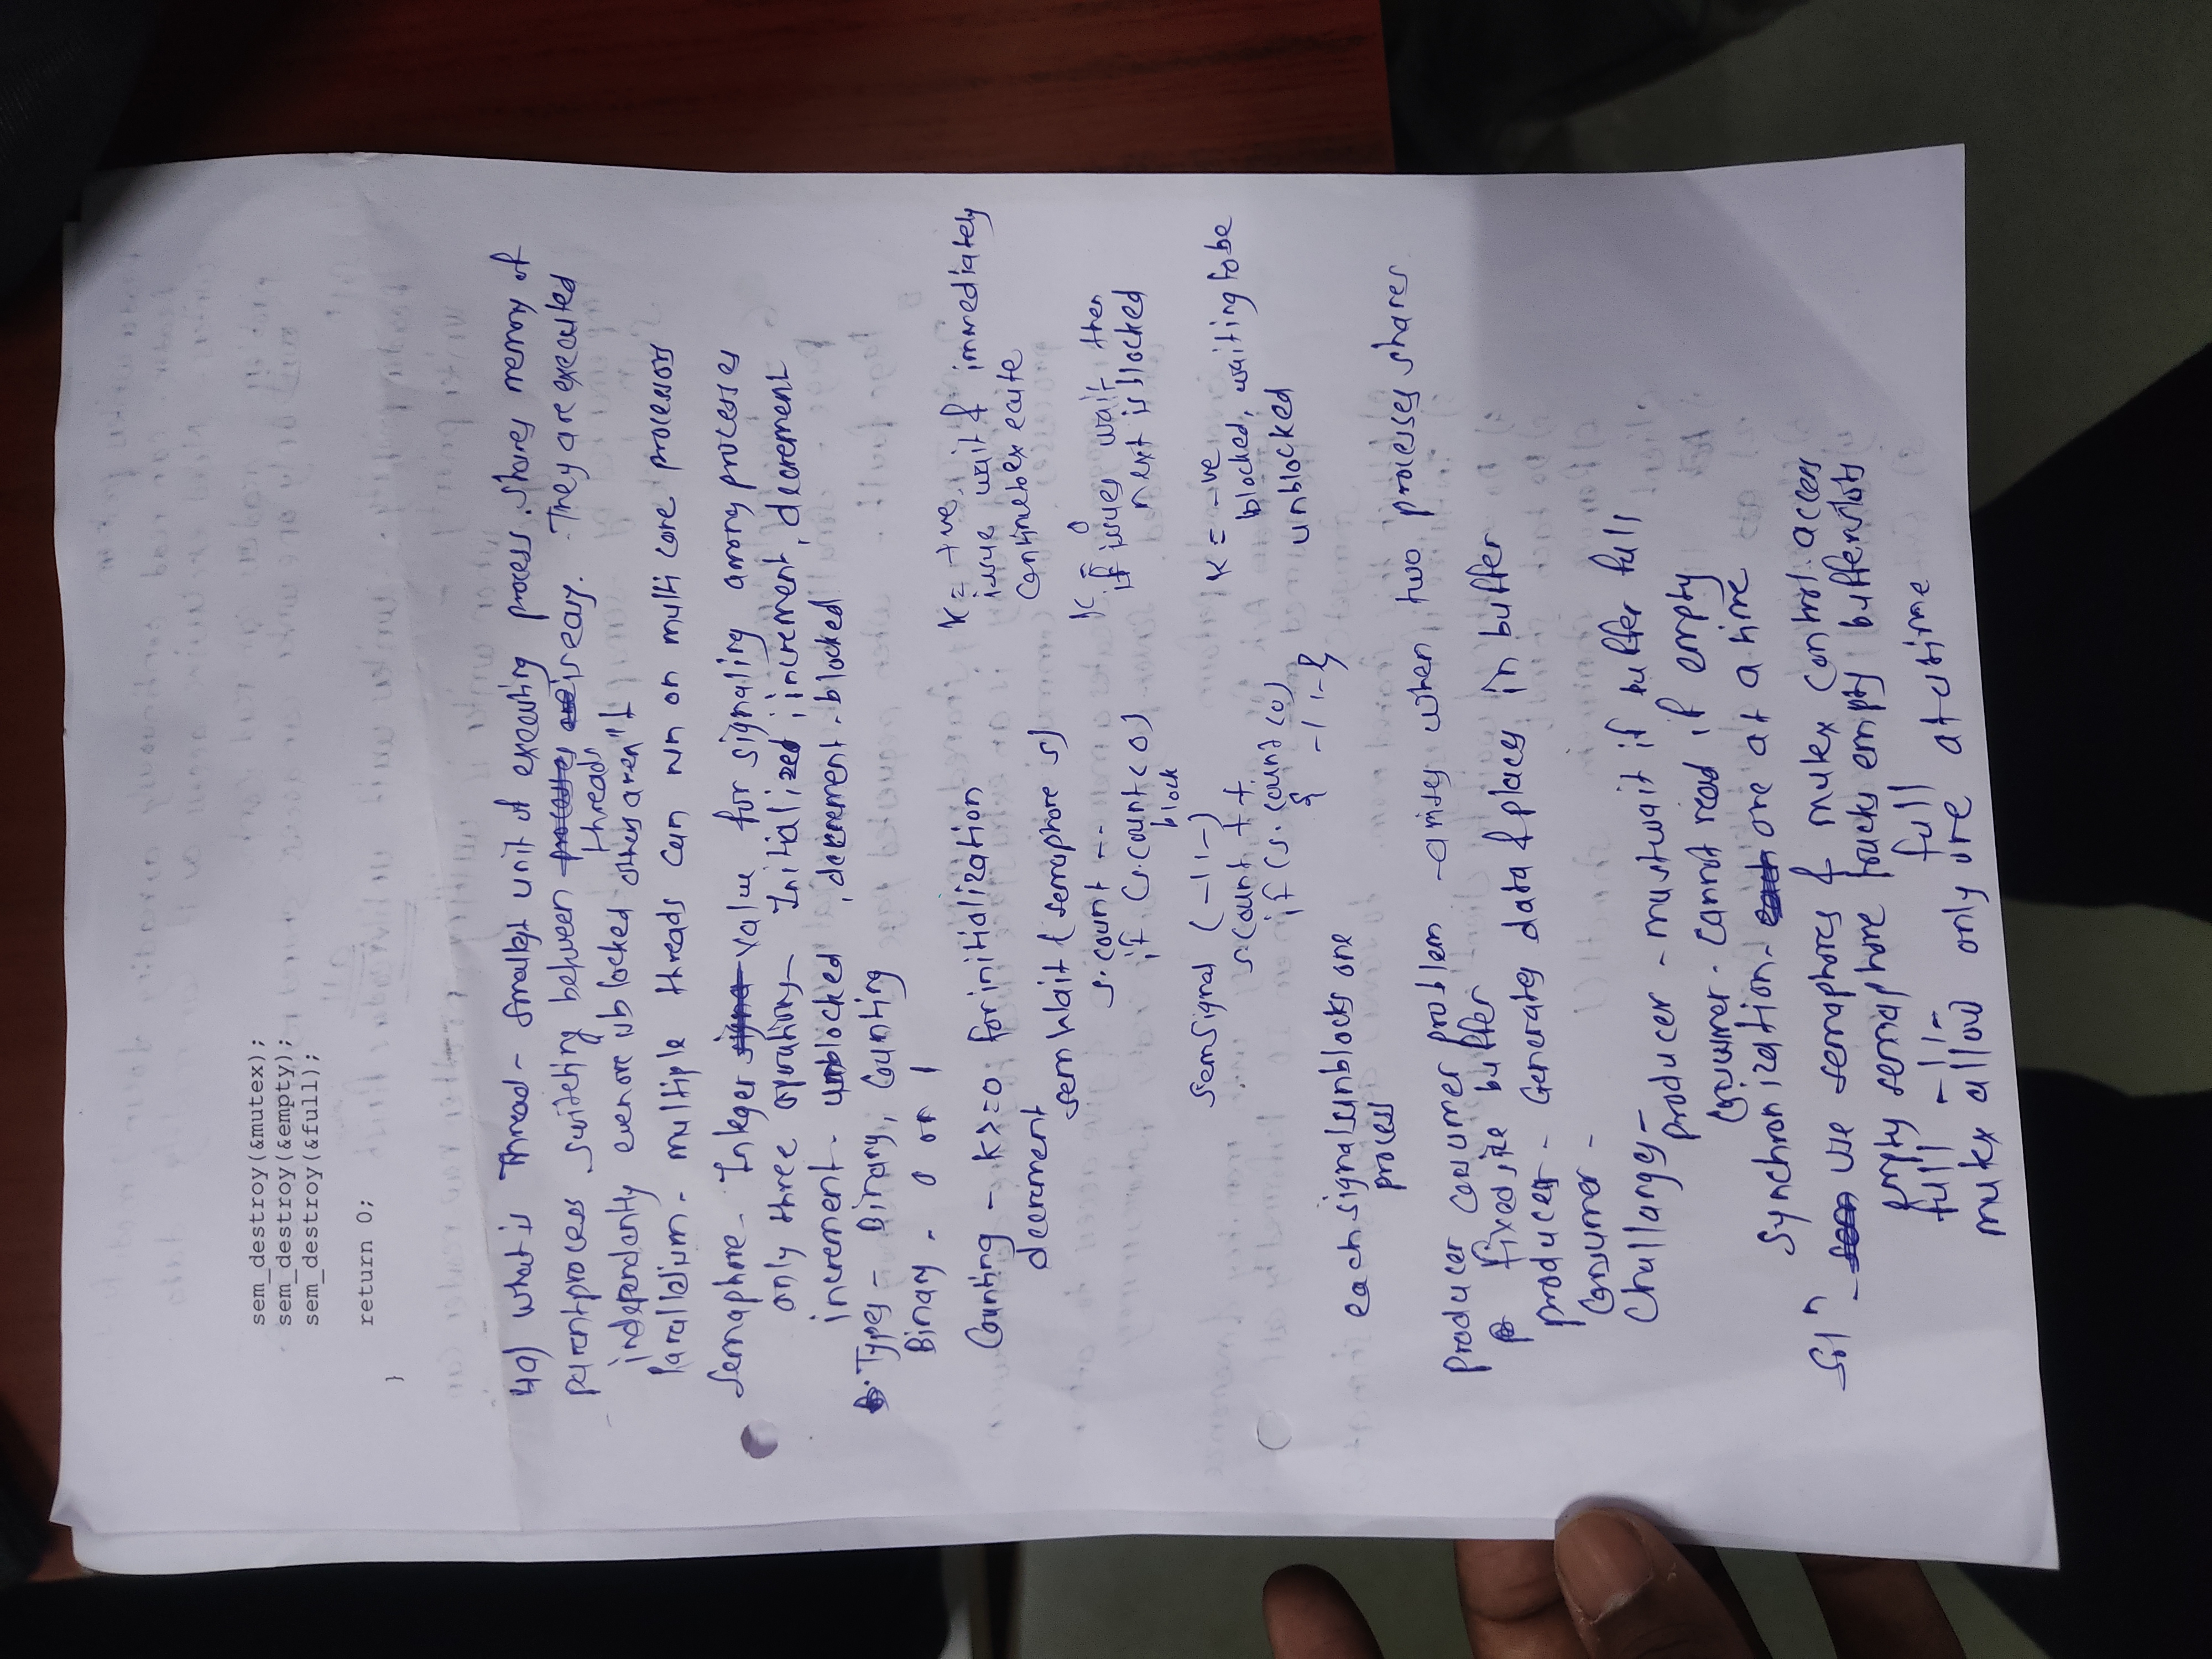 sem_destroy(&mutex);
sem_destroy(&empty);
sem_destroy(&full);
return 0;
}
4a) What is Thread - Smallest unit of executing process. Shares memory of
parent process switching between threads is easy. They are executed
independantly even one is blocked others aren't
Parallelium - multiple threads can run on multi core processors
Semaphore - Integer value for signaling among processes
only three operations - Initialized, increment, decrement
increment - unblocked, decrement - blocked
Types - Binary, Counting
Binary - 0 or 1
Counting - K >= 0 for initialization
decrement
semWait (semaphore s)
s.count --
if (s.count < 0)
block
SemSignal ( -11- )
s.count ++
if (s.count < 0)
{ -11- }
each signal unblocks one
process
K = +ve
issue wait & immediately
continue to execute
K = 0
if issues wait then
next is blocked
K = -ve
blocked, waiting to be
unblocked
Producer consumer problem - arises when two processes shares
fixed size buffer
producer - Generates data & places in buffer
Consumer -
Challanges -
Producer - must wait if buffer full
Consumer - cannot read if empty
Synchronization - one at a time
Solⁿ - use semaphores & mutex control access
empty semaphore tracks empty buffer slots
full -11- full
mutex allow only one at a time